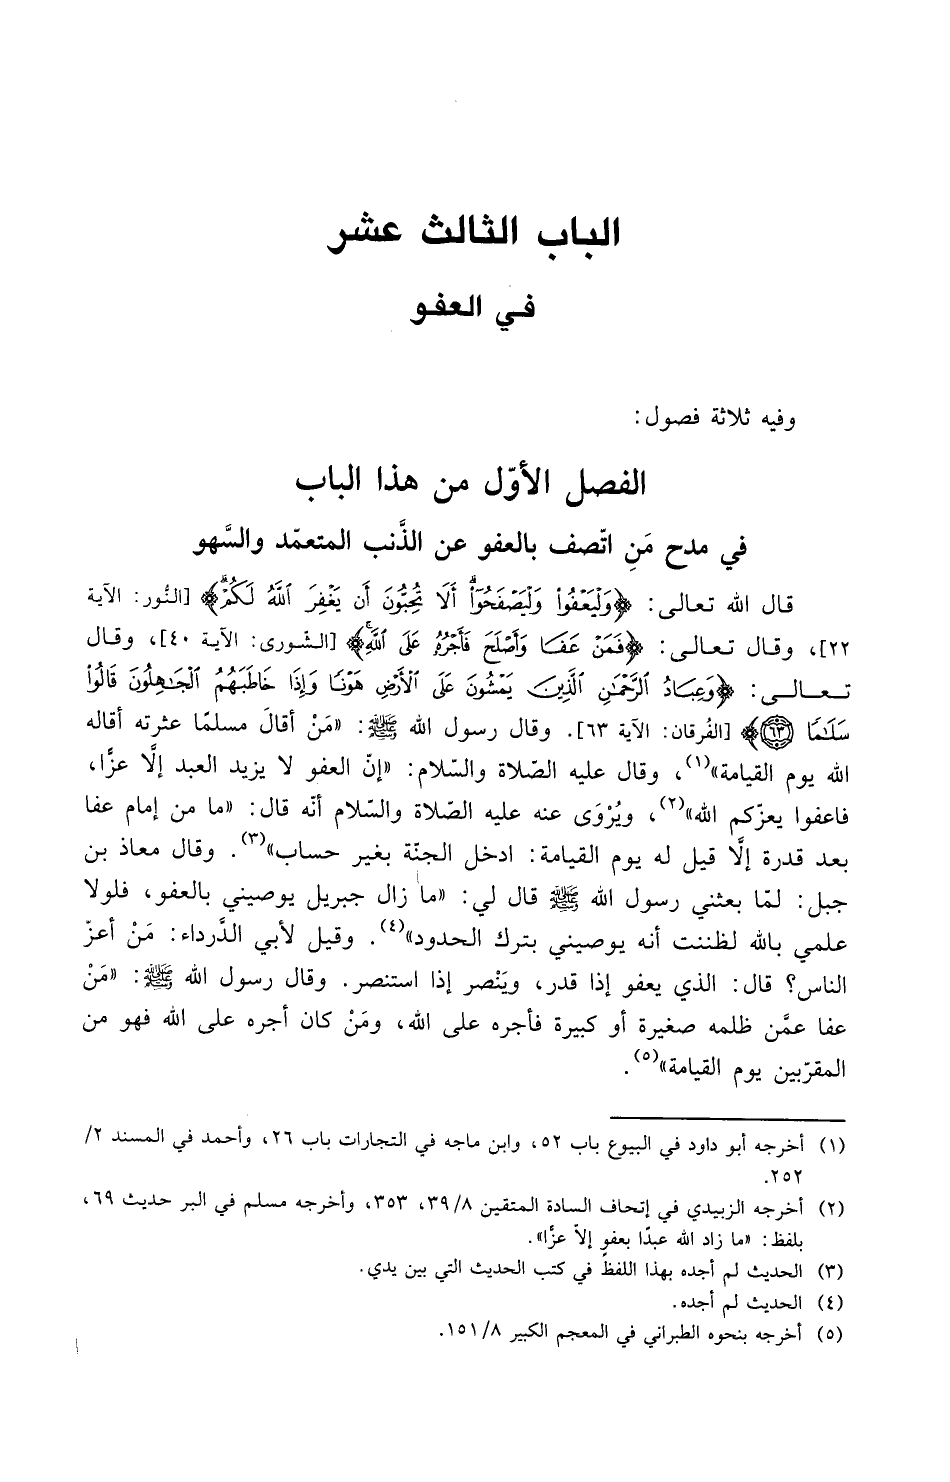 الباب الثالث عشر
في العفو
وفيه ثلاثة فصول:
الفصل الأوّل من هذا الباب
في مدح مَنِ اتّصف بالعفو عن الذَّنب المتعمّد والسَّهو
قال الله تعالى: ﴿وَلْيَعْفُوا۟ وَلْيَصْفَحُوٓا۟ ۗ أَلَا تُحِبُّونَ أَن يَغْفِرَ ٱللَّهُ لَكُمْ ۗ﴾ [النُّور: الآية
٢٢]، وقال تعالى: ﴿فَمَنْ عَفَا وَأَصْلَحَ فَأَجْرُهُۥ عَلَى ٱللَّهِ ۚ﴾ [الشّورى: الآية ٤٠]، وقال
تعالى: ﴿وَعِبَادُ ٱلرَّحْمَٰنِ ٱلَّذِينَ يَمْشُونَ عَلَى ٱلْأَرْضِ هَوْنًا وَإِذَا خَاطَبَهُمُ ٱلْجَٰهِلُونَ قَالُوا۟
سَلَٰمًا ٦٣﴾ [الفُرقان: الآية ٦٣]. وقال رسول الله ﷺ: «مَنْ أقالَ مسلمًا عثرته أقاله
الله يوم القيامة»(١)، وقال عليه الصّلاة والسّلام: «إنّ العفو لا يزيد العبد إلَّا عزًّا،
فاعفوا يعزّكم الله»(٢)، ويُرْوَى عنه عليه الصّلاة والسّلام أنّه قال: «ما من إمام عفا
بعد قدرة إلَّا قيل له يوم القيامة: ادخل الجنّة بغير حساب»(٣). وقال معاذ بن
جبل: لمّا بعثني رسول الله ﷺ قال لي: «ما زال جبريل يوصيني بالعفو، فلولا
علمي بالله لظننت أنه يوصيني بترك الحدود»(٤). وقيل لأبي الدَّرداء: مَنْ أعزّ
الناس؟ قال: الذي يعفو إذا قدر، ويَنْصر إذا استنصر. وقال رسول الله ﷺ: «مَنْ
عفا عمَّن ظلمه صغيرة أو كبيرة فأجره على الله، ومَنْ كان أجره على الله فهو من
المقرّبين يوم القيامة»(٥).
(١) أخرجه أبو داود في البيوع باب ٥٢، وابن ماجه في التجارات باب ٢٦، وأحمد في المسند ٢/
٢٥٢.
(٢) أخرجه الزبيدي في إتحاف السادة المتقين ٣٩/٨، ٣٥٣، وأخرجه مسلم في البر حديث ٦٩،
بلفظ: «ما زاد الله عبدًا بعفوٍ إلاّ عزًّا».
(٣) الحديث لم أجده بهذا اللفظ في كتب الحديث التي بين يدي.
(٤) الحديث لم أجده.
(٥) أخرجه بنحوه الطبراني في المعجم الكبير ١٥١/٨.